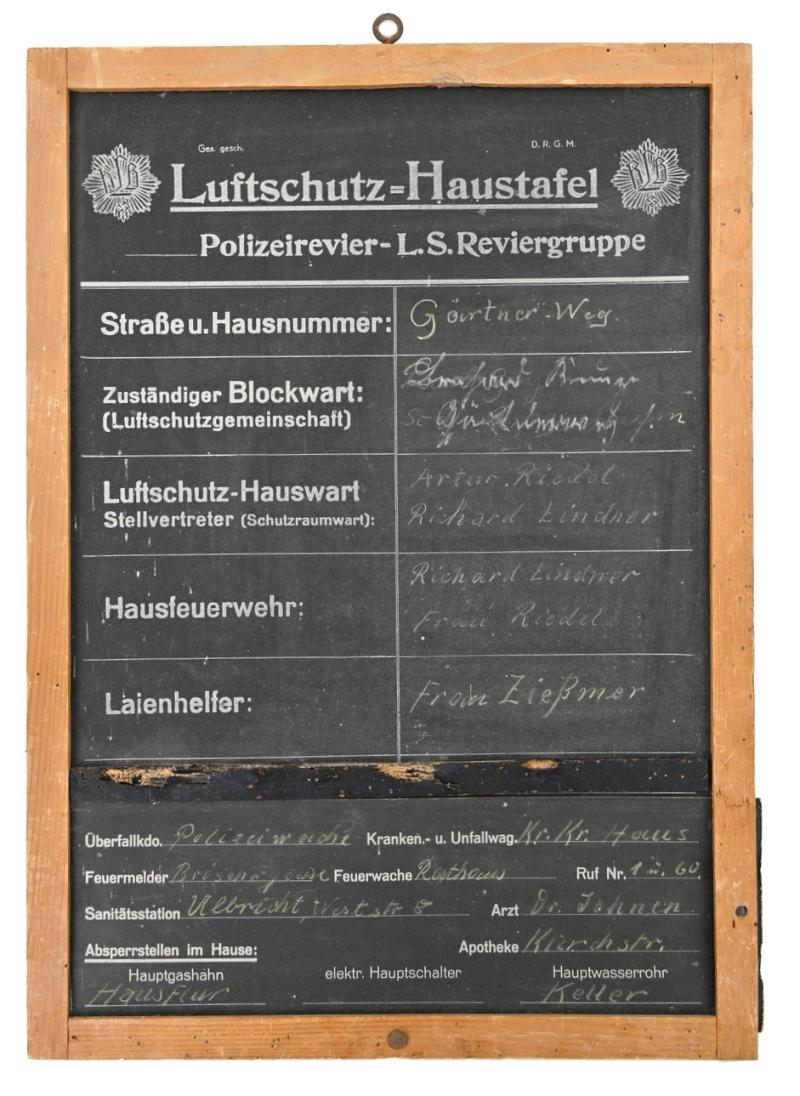 Ges. gesch. D. R. G. M.
Luftschutz=Haustafel
Polizeirevier-L.S.Reviergruppe
Straße u. Hausnummer: Gärtner-Weg.
Zuständiger Blockwart:
(Luftschutzgemeinschaft)
Luftschutz-Hauswart Artur Riedel
Stellvertreter (Schutzraumwart): Richard Lindner
Richard Lindner
Hausfeuerwehr:
Frau Riedel
Laienhelfer: Frau Zießmer
Überfallkdo. Polizeiwache Kranken.- u. Unfallwag. Kr. Kr. Haus
Feuermelder Feuerwache Rathaus Ruf Nr. 1 u. 60.
Sanitätsstation Ulbricht, Weststr 8 Arzt Dr. Johnen
Absperrstellen im Hause: Apotheke Kirchstr.
Hauptgashahn elektr. Hauptschalter Hauptwasserrohr
Hausflur Keller